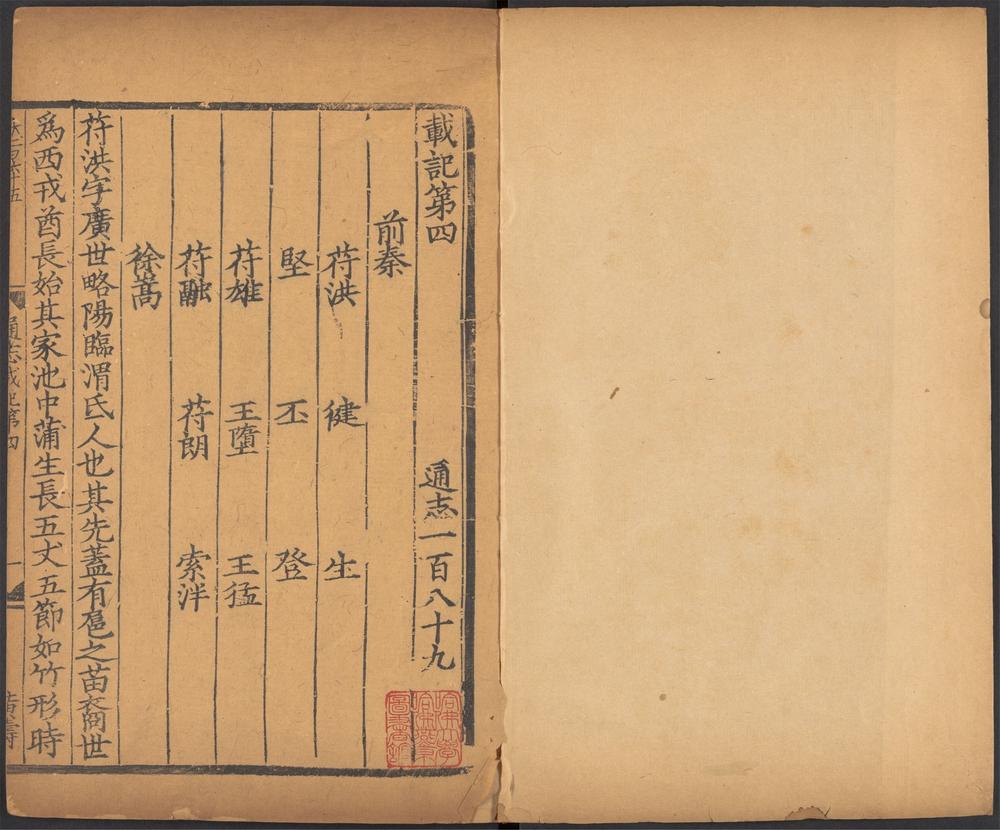 載記第四 通志一百八十九
前秦
苻洪 健 生
堅 丕 登
苻雄 王墮 王猛
苻融 苻朗 索泮
徐嵩
苻洪字廣世略陽臨渭氐人也其先蓋有扈之苗裔世
爲西戎酋長始其家池中蒲生長五丈五節如竹形時
通志載記第四 一
哈佛大學哈佛燕京圖書館